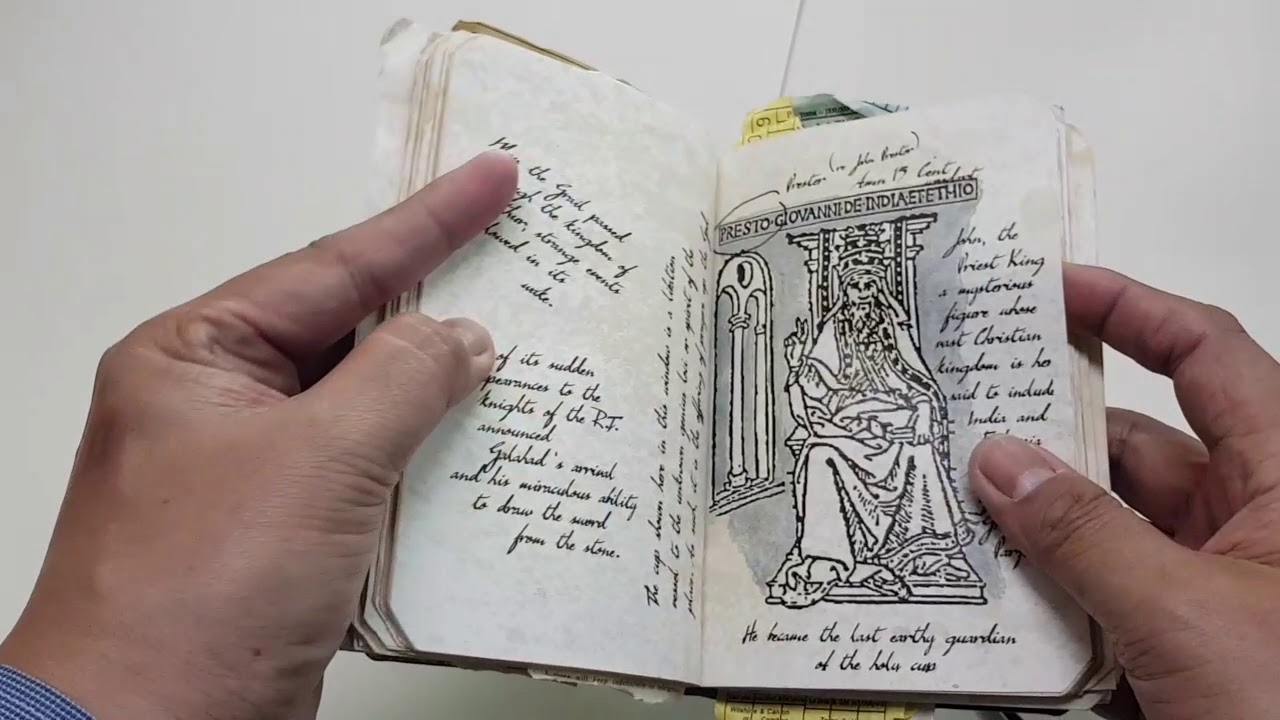 the Grail passed
the kingdom of
strange events
in its
wake.
of its sudden
to the
knights of the R.T.
announced
Galahad's arrival
and his miraculous ability
to draw the sword
from the stone.
The cup shown here in this window is a libation
vessel to the unknown genius loci or spirit of the
place. As such it is the offering of
Prestor (re John Prestor)
15 Cent.
PRESTO·GIOVANNI·DE·INDIA·ET·ETHIO
John, the
Priest King
a mysterious
figure whose
vast Christian
kingdom is
said to include
India and
He became the last earthy guardian
of the holy cup
Wilshire & Canon